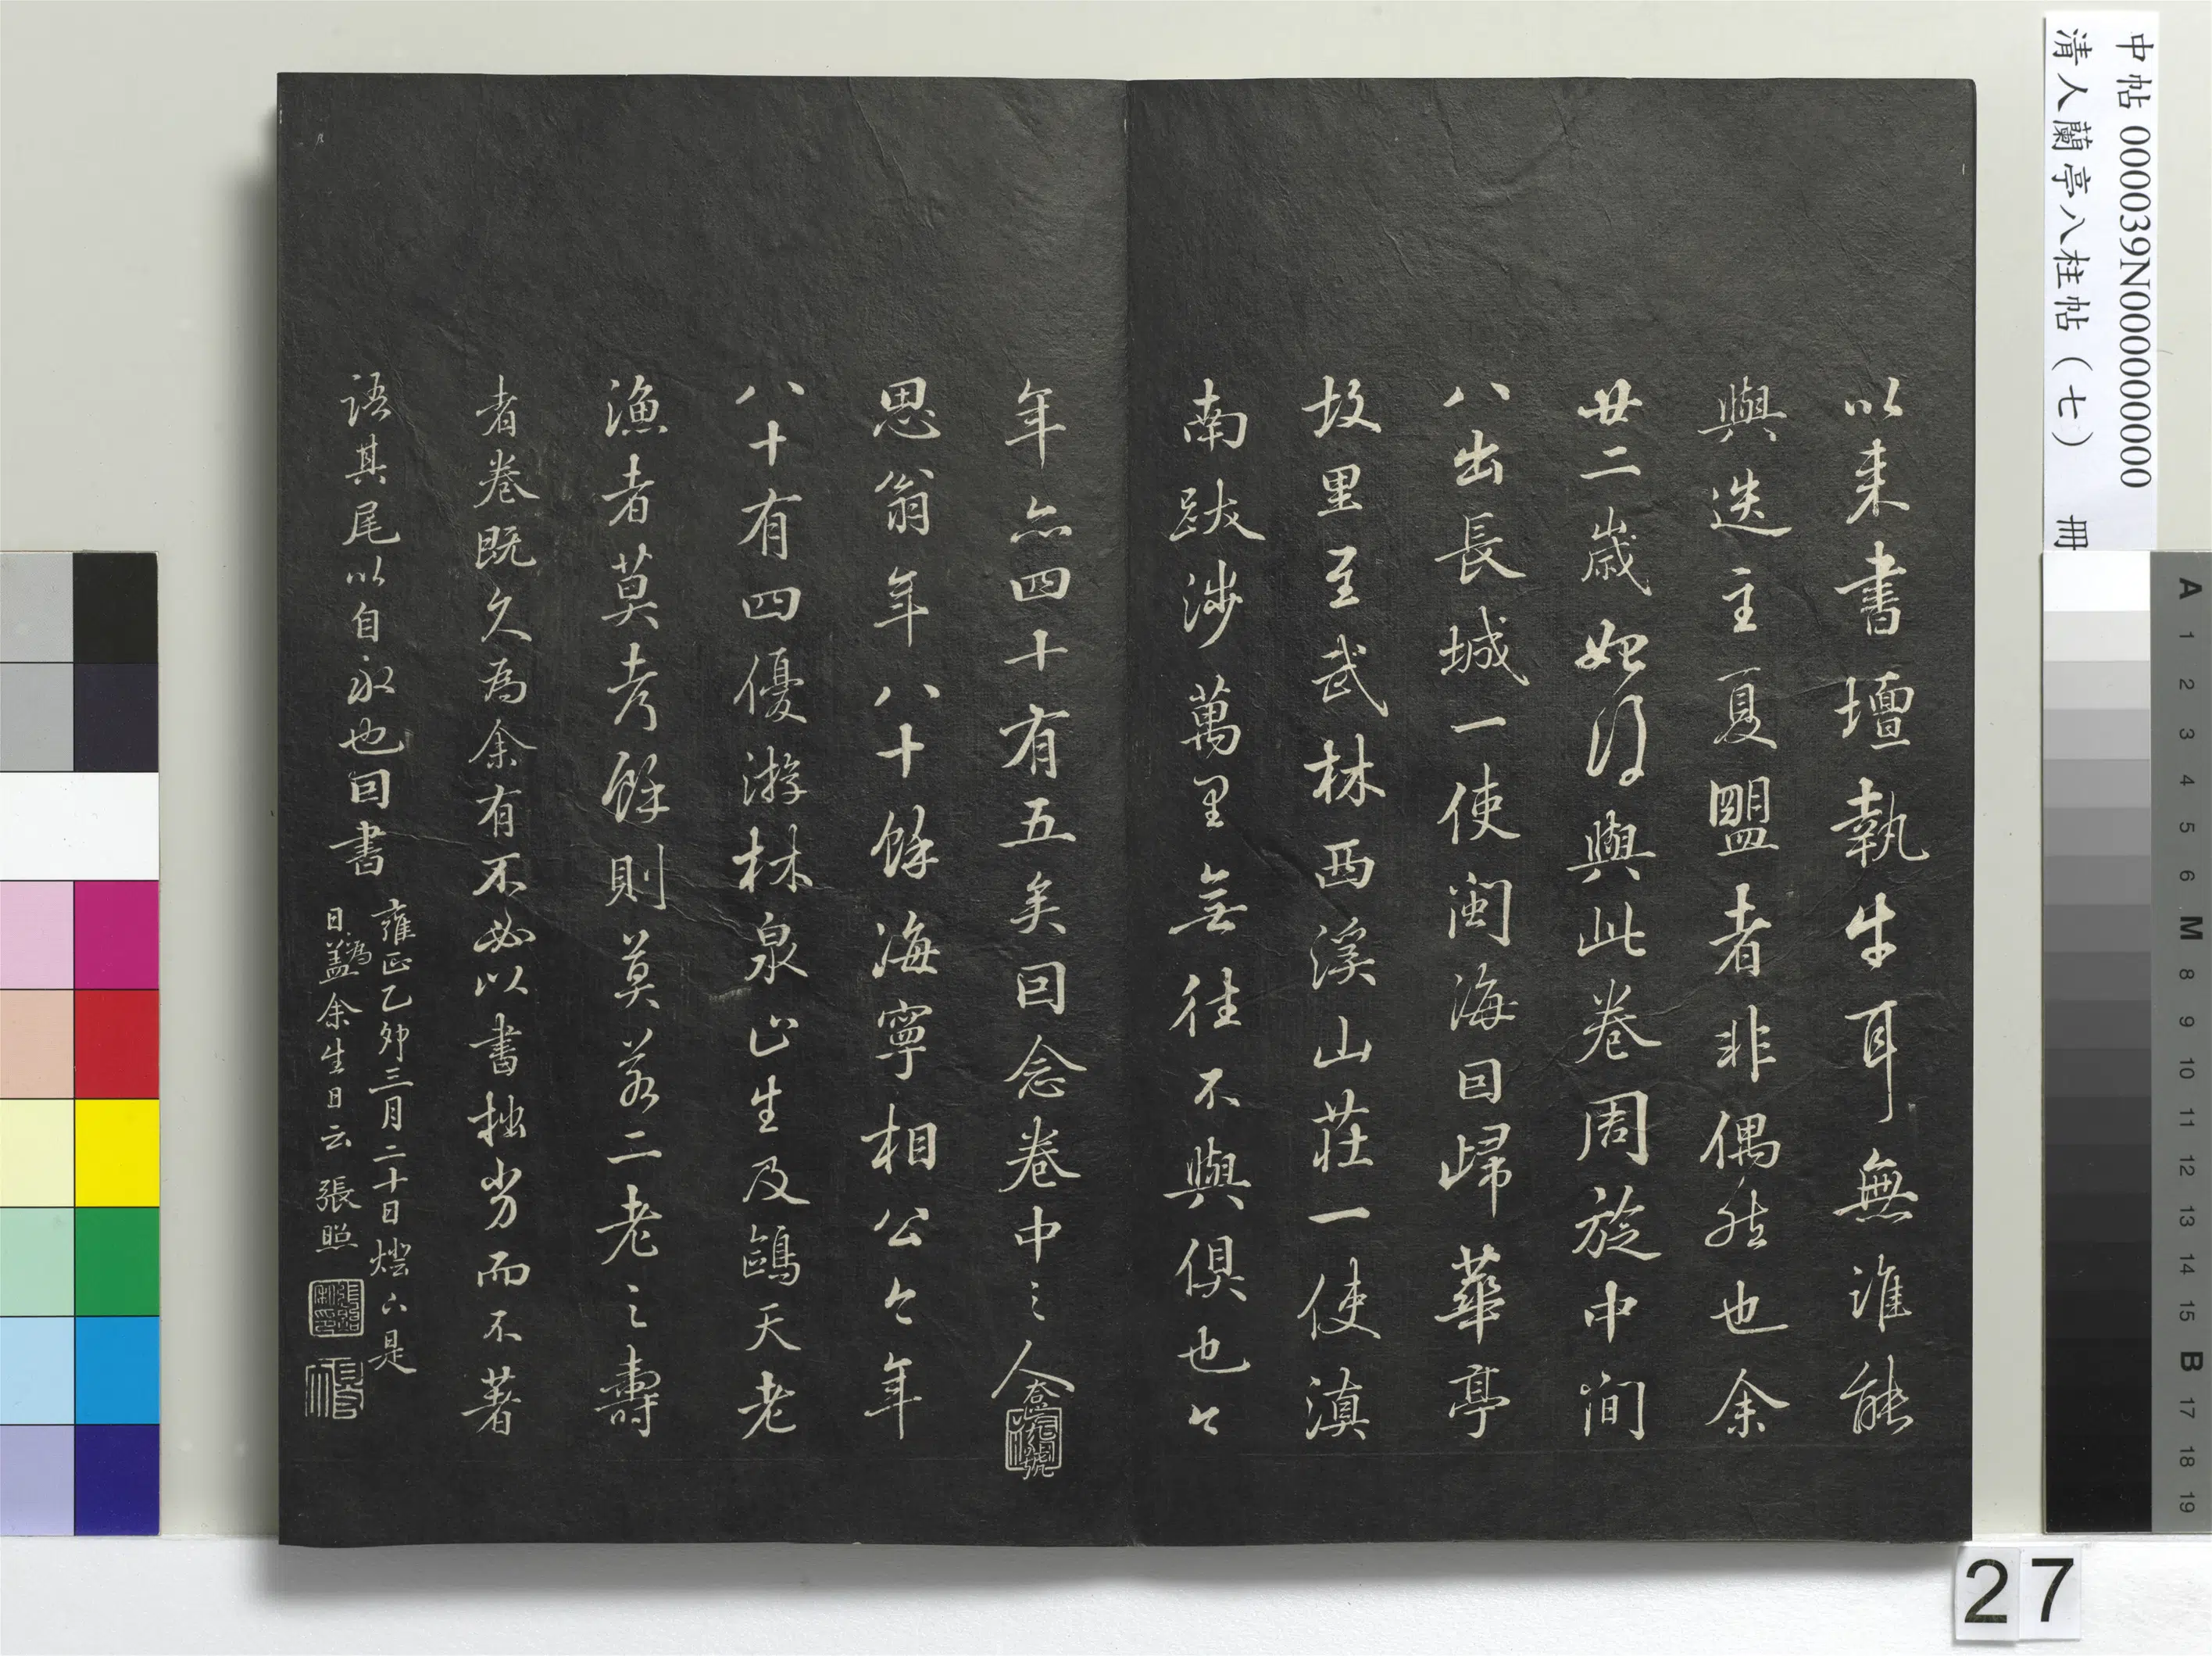 中帖 000039N000000000
清人蘭亭八柱帖（七） 冊
以来書壇執牛耳無誰能
與迭主夏盟者非偶然也余
廿二歲始得與此卷周旋中間
八出長城一使閩海回歸華亭
故里至武林西溪山莊一使滇
南跋涉萬里無往不與俱也今
年亦四十有五矣回念卷中之人
思翁年八十餘海寧相公今年
八十有四優游林泉山生及鷗天老
漁者莫考餘則莫若二老之壽
者卷既久為余有不必以書拙劣而不著
語其尾以自永也回書
雍正乙卯三月二十日燈下是
日為蓋余生日云 張照
A 1 2 3 4 5 6 M 8 9 10 11 12 13 14 15 B 17 18 19
27